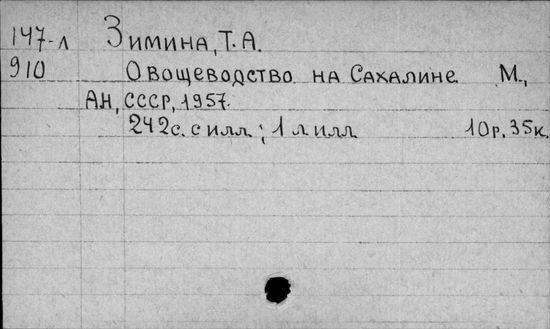 147-л Зимина, Т. А.
910 Овощеводство на Сахалине. М.,
АН, СССР, 1957.
242с. с илл.; 1 л илл 10р. 35к.